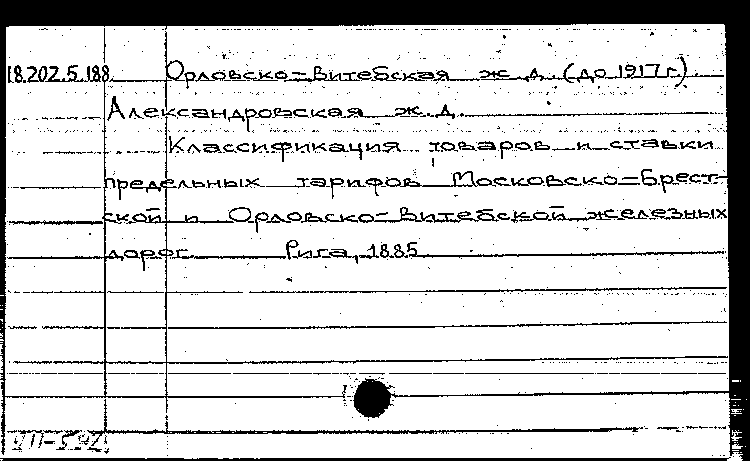 18.202.5.188 Орловско-Витебская ж. д. (до 1917 г.)
Александровская ж. д.
Классификация товаров и ставки
предельных тарифов Московско-Брест-
ской и Орловско-Витебской железных
дорог. Рига, 1885.